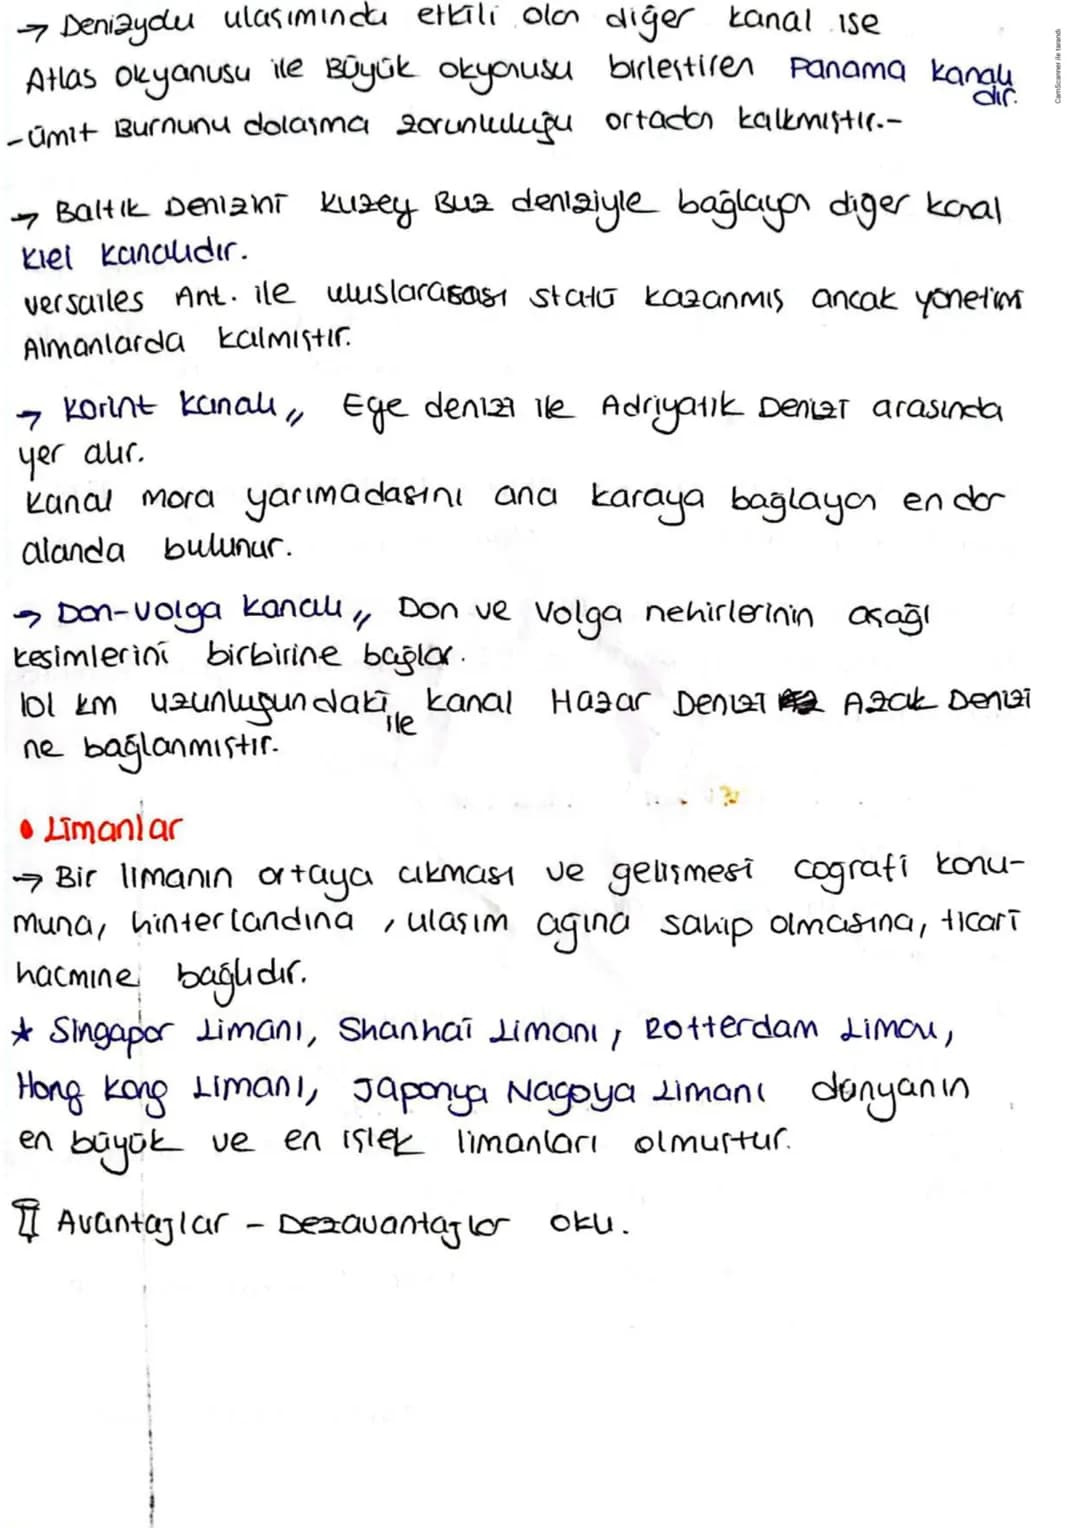 → Denizyolu ulaşımında etkili olan diğer kanal ise
Atlas Okyanusu ile Büyük okyanusu birleştiren Panama kanalı
dır.
- Ümit Burnunu dolaşma zorunluluğu ortadan kalkmıştır.-
→ Baltık Denizini Kuzey Buz deniziyle bağlayan diğer kanal
Kiel kanalıdır.
Versailles Ant. ile uluslarasası statü kazanmış ancak yönetim
Almanlarda kalmıştır.
→ Korint kanalı,, Ege denizi ile Adriyatik Denizi arasında
yer alır.
Kanal mora yarımadasını ana karaya bağlayan en dar
alanda bulunur.
→ Don-Volga kanalı,, Don ve Volga nehirlerinin aşağı
kesimlerini birbirine bağlar.
101 km uzunluğundaki kanal Hazar Denizi Azak Denizi
ile
ne bağlanmıştır.
• Limanlar
→ Bir limanın ortaya çıkması ve gelişmesi coğrafi konu-
muna, hinterlandına, ulaşım ağına sahip olmasına, ticari
hacmine bağlıdır.
★ Singapor Limanı, Shanhai Limanı, Rotterdam Limanı,
Hong Kong Limanı, Japonya Nagoya Limanı dünyanın
en büyük ve en işlek limanları olmuştur.
Avantajlar - Dezavantajlar oku.
CamScanner ile tarandı